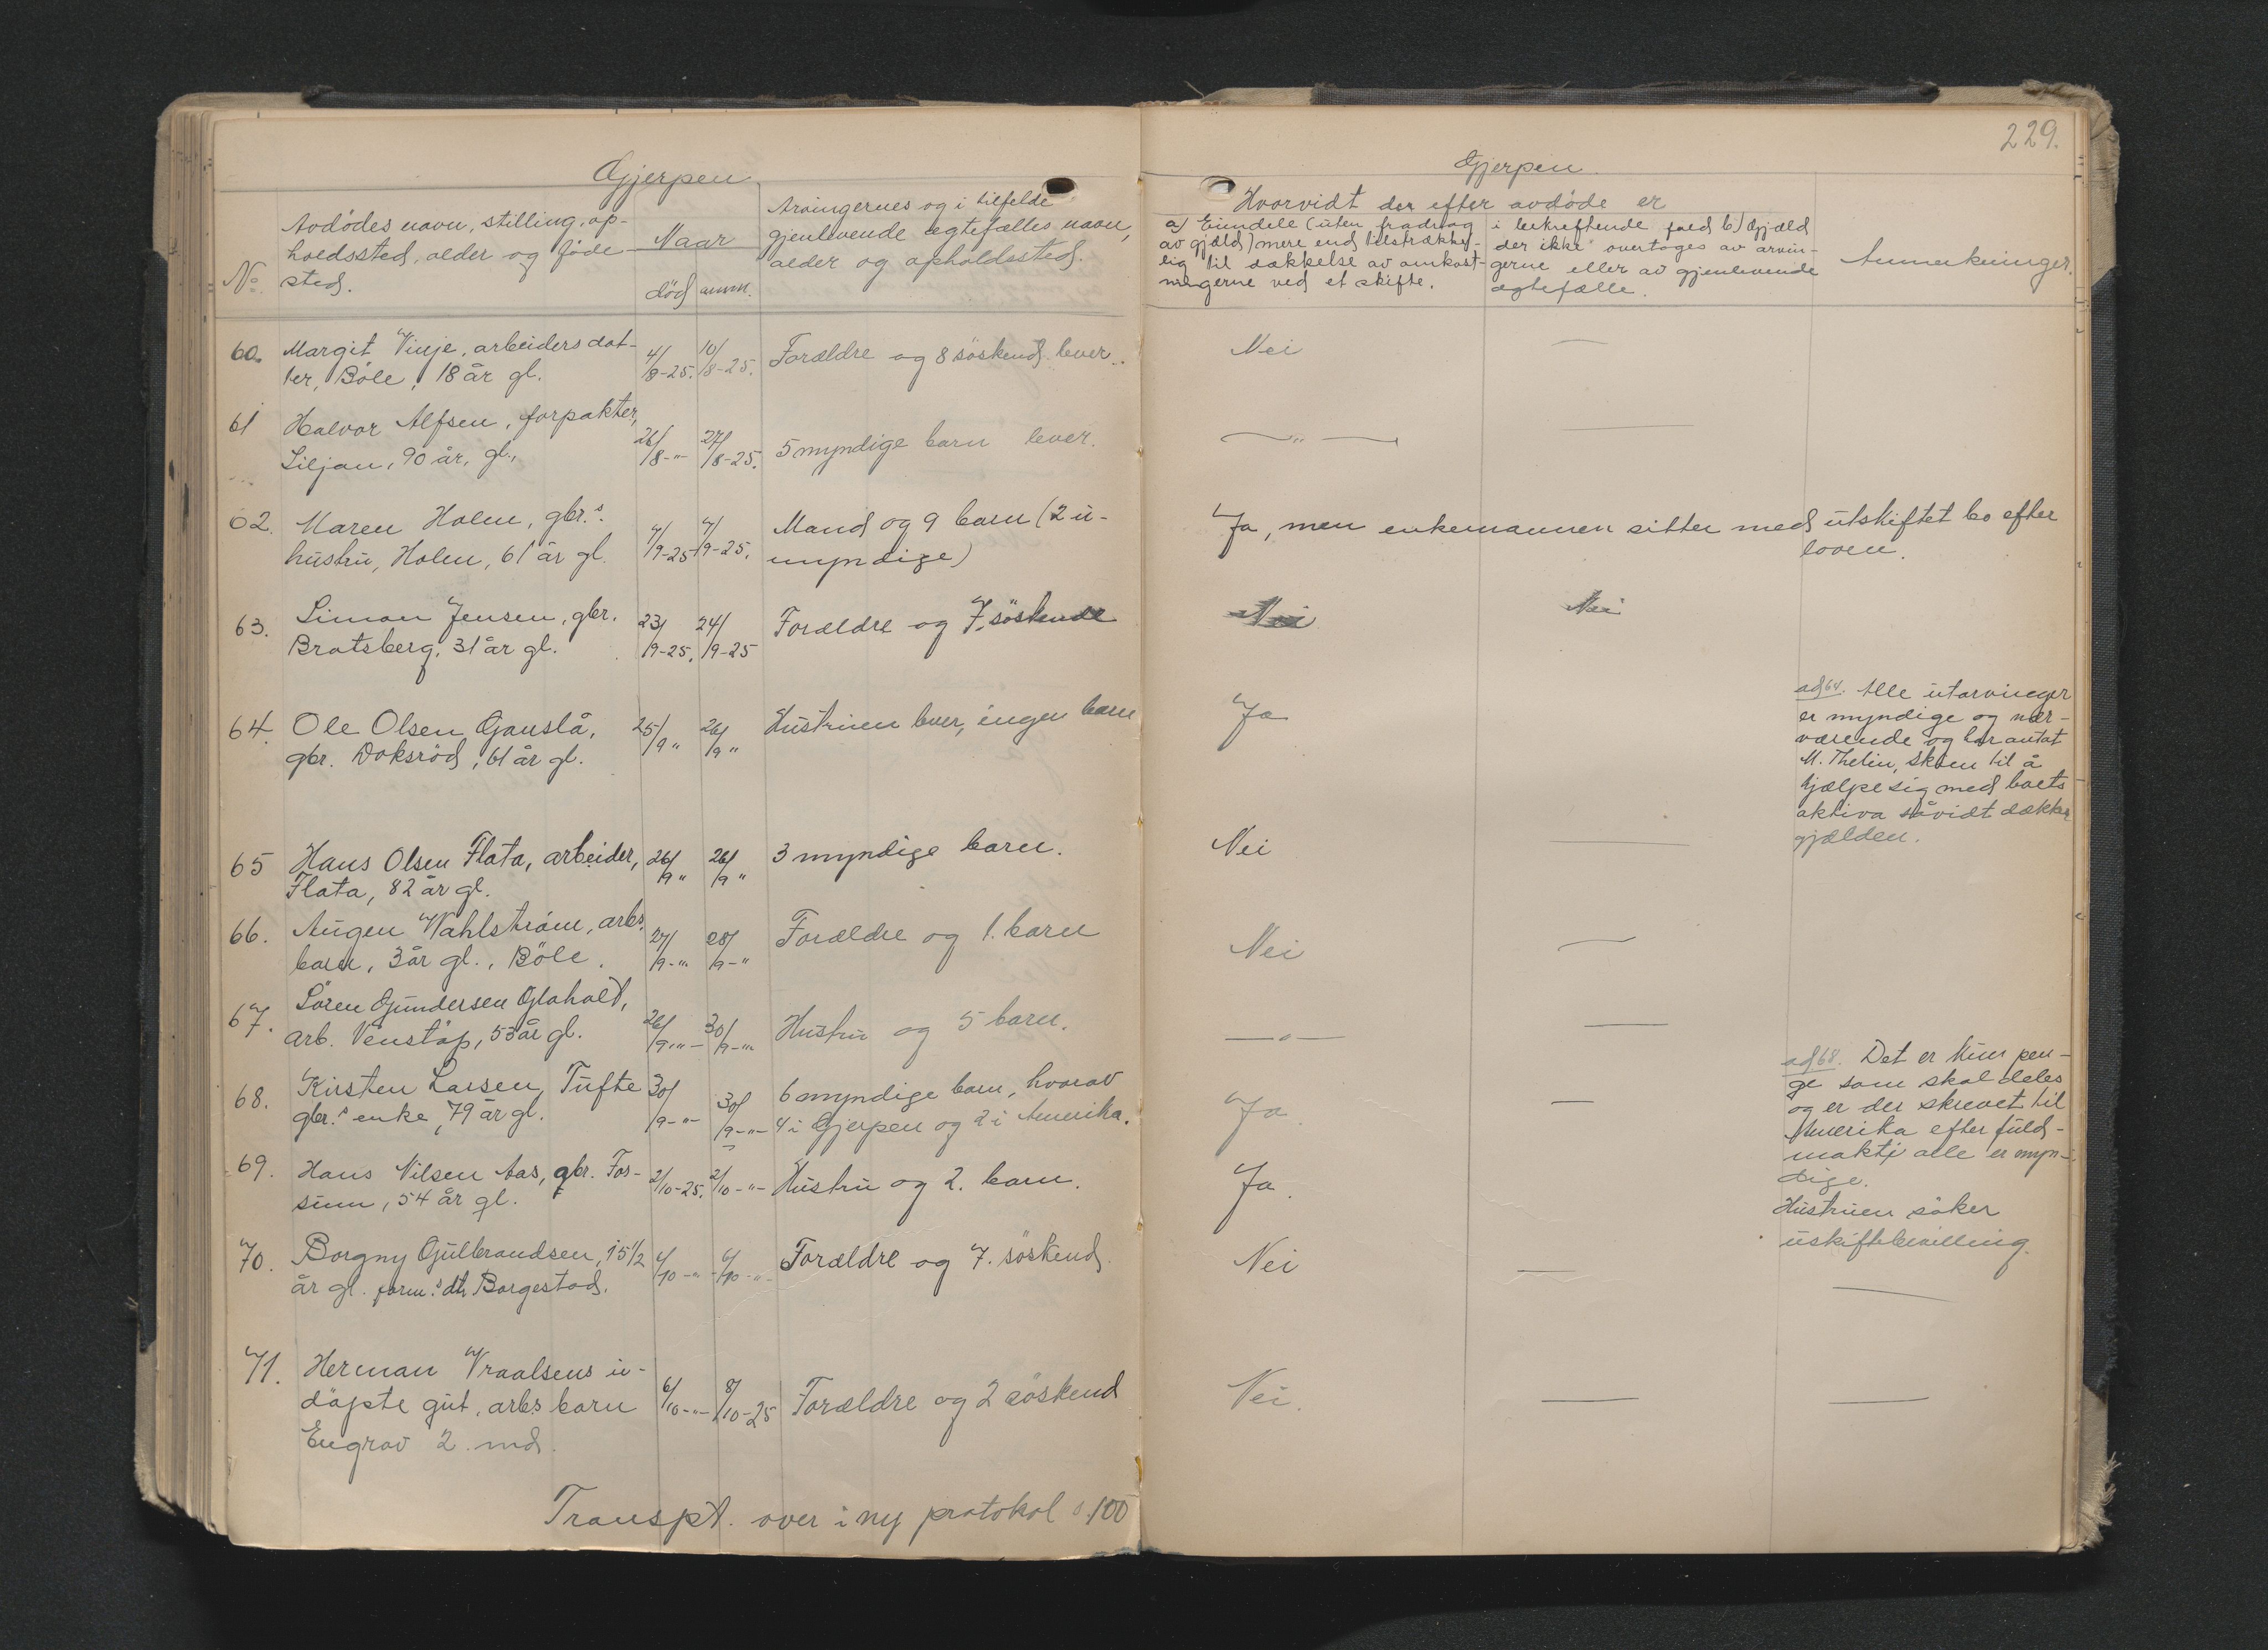 229.
Gjerpen
Gjerpen.
No.
Avdødes navn, stilling, op-
holdssted, alder og føde
sted.
Naar
død anm.
Arvingernes og i tilfelde
gjenlevende egtefælles navn,
alder og opholdssted.
Hvorvidt der efter avdøde er
a) Eiendele (uten fradrag
av gjæld) mere end tilstrække-
lig til dækkelse av omkost-
ningerne ved et skifte.
i bekreftende fald b) Gjæld
der ikke overtages av arvin-
gerne eller av gjenlevende
ægtefælle.
Anmerkninger.
60. Margit Vinje, arbeidersdat-
ter, Böle, 18 år gl.
4/8-25. 10/8-25.
Forældre og 8 söskend lever.
Nei —
61 Halvor Alfsen, forpakter,
Liljan, 90 år, gl.,
26/8-"- 27/8-25.
5 myndige barn lever.
—"— —
62. Maren Holm, gbr.s
hustru, Holm, 61 år gl.
4/9-25 7/9-25.
Mand og 9 barn (2 u-
myndige)
Ja, men enkemannen sitter med utskiftet bo efter
loven.
63. Simon Jensen, gbr.
Bratsberg, 31 år gl.
23/9-25. 24/9-25
Forældre og 7. söskende
Nei Nei
64. Ole Olsen Gauslå,
gbr. Doksröd, 61 år gl.
25/9 " 26/9 "
Hustruen lever, ingen barn
Ja
ad 64. Alle utarvinger
er myndige og nær-
værende og har antat
M. Thelin, Skien til å
hjælpe sig med boets
aktiva såvidt dækker
gjælden.
65 Hans Olsen Flata, arbeider,
Flata, 82 år gl.
26/9 " 26/9 "
3 myndige barn.
Nei —
66. Augen Wahlström, arbs.
barn, 3 år gl., Böle.
27/9-"- 28/9-"
Forældre og 1. barn
Nei —
67. Sören Gundersen Glaholt,
arb. Venstöp, 53 år gl.
26/9-"- 30/9-"-
Hustru og 5 barn.
—"— —
68. Kirsten Larsen Tufte
gbr.s enke, 79 år gl.
30/9-"- 30/9-"-
6 myndige barn, hvorav
4 i Gjerpen og 2 i Amerika.
Ja. —
ad 68. Det er kun pen-
ge som skal deles
og er der skrevet til
Amerika efter fuld-
makt; alle er myn-
dige.
69. Hans Nilsen Aas, gbr. Fos-
sum, 54 år gl.
2/10-25. 2/10-"-
Hustru og 2. barn.
Ja.
Hustruen söker
uskiftebevilling.
70. Borgny Gulbrandsen, 15 1/2
år gl. form.s dtr Borgestad.
4/10-"- 6/10-"-
Forældre og 7. söskend
Nei — —
71. Herman Vraalsens u-
döpte gut, arbs barn
Engrav 2. md.
6/10-"- 8/10-25
Forældre og 2 söskend
Nei. — —
Transpt. over i ny protokol s. 100